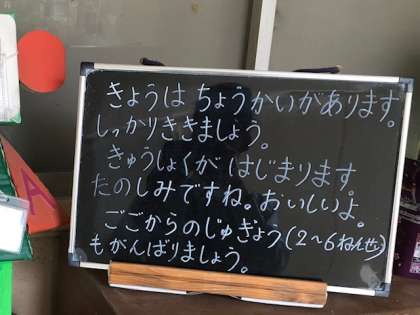 きょうは ちょうかいがあります。
しっかりききましょう。
きゅうしょくが はじまります。
たのしみですね。おいしいよ。
ごごからのじゅぎょう(2～6ねんせい)
もがんばりましょう。
A